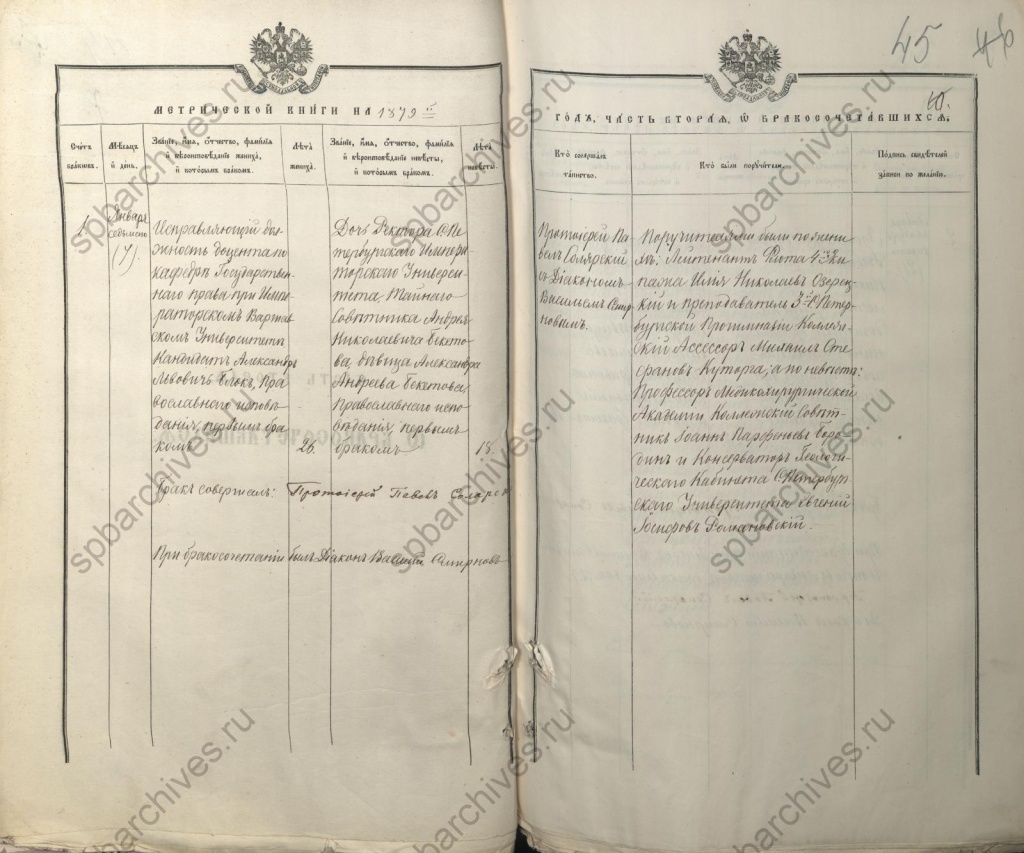 45
46
10.
МЕТРИЧЕСКОЙ КНИГИ НА 1879 й
ГОДЪ, ЧАСТЬ ВТОРАЯ, Ѿ БРАКОСОЧЕТАВШИХСЯ.
Счетъ браковъ.
Мѣсяцъ и день.
Званіе, имя, отчество, фамилія и вѣроисповѣданіе жениха, и которымъ бракомъ.
Лѣта жениха.
Званіе, имя, отчество, фамилія и вѣроисповѣданіе невѣсты, и которымъ бракомъ.
Лѣта невѣсты.
Кто совершалъ таинство.
Кто были поручители.
Подпись свидѣтелей записи по желанію.
1
Января
седьмаго
(7).
Исправляющій дол-
жность доцента по
кафедрѣ Государствен-
наго права при Импе-
раторскомъ Варшав-
скомъ Университетѣ
Кандидатъ Александръ
Львовичъ Блокъ, Пра-
вославнаго исповѣ-
данія, первымъ бра-
комъ
26.
Дочь Ректора С.Пе-
тербургскаго Импера-
торскаго Универси-
тета, Тайнаго
Совѣтника Андрея
Николаевича Бекето-
ва, дѣвица Александра
Андреева Бекетова,
Православнаго испо-
вѣданія, первымъ
бракомъ
18.
Бракъ совершалъ: Протоіерей Павелъ Солярскій
При бракосочетаніи былъ Діаконъ Василій Смирновъ
Протоіерей Па-
велъ Солярскій
съ Діакономъ
Васильемъ Смир-
новымъ.
Поручителями были по жени-
хѣ: Лейтенантъ Флота 4го Эки-
пажа Илія Николаевъ Озерец-
кій и преподаватель 3й С.Петер-
бургской Прогимназіи Коллеж-
скій Ассессоръ Михаилъ Сте-
фановъ Куторга; а по невѣстѣ:
Профессоръ Медикохирургической
Академіи Коллежскій Совѣт-
никъ Іоаннъ Парфеньевъ Боро-
динъ и Консерваторъ Геологи-
ческаго Кабинета С.Петербург-
скаго Университета Евгеній
Романовскій.
spbarchives.ru